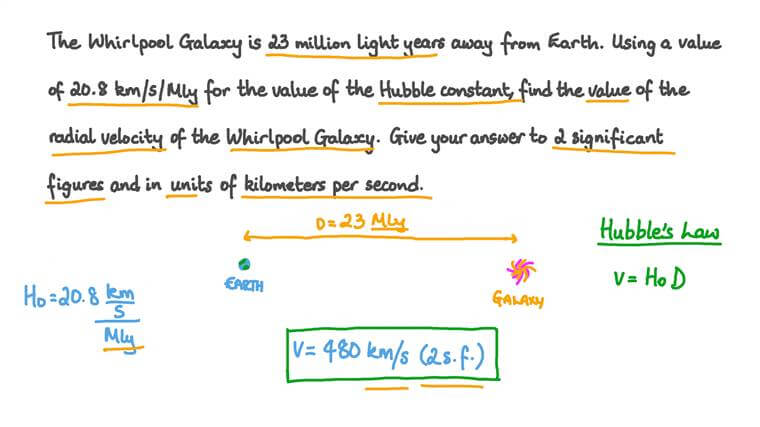 The Whirlpool Galaxy is 23 million light years away from Earth. Using a value
of 20.8 km/s/Mly for the value of the Hubble constant, find the value of the
radial velocity of the Whirlpool Galaxy. Give your answer to 2 significant
figures and in units of kilometers per second.
D = 23 Mly
Hubble's Law
EARTH
GALAXY
V = H₀ D
H₀ = 20.8 km
s
Mly
V = 480 km/s (2 s.f.)